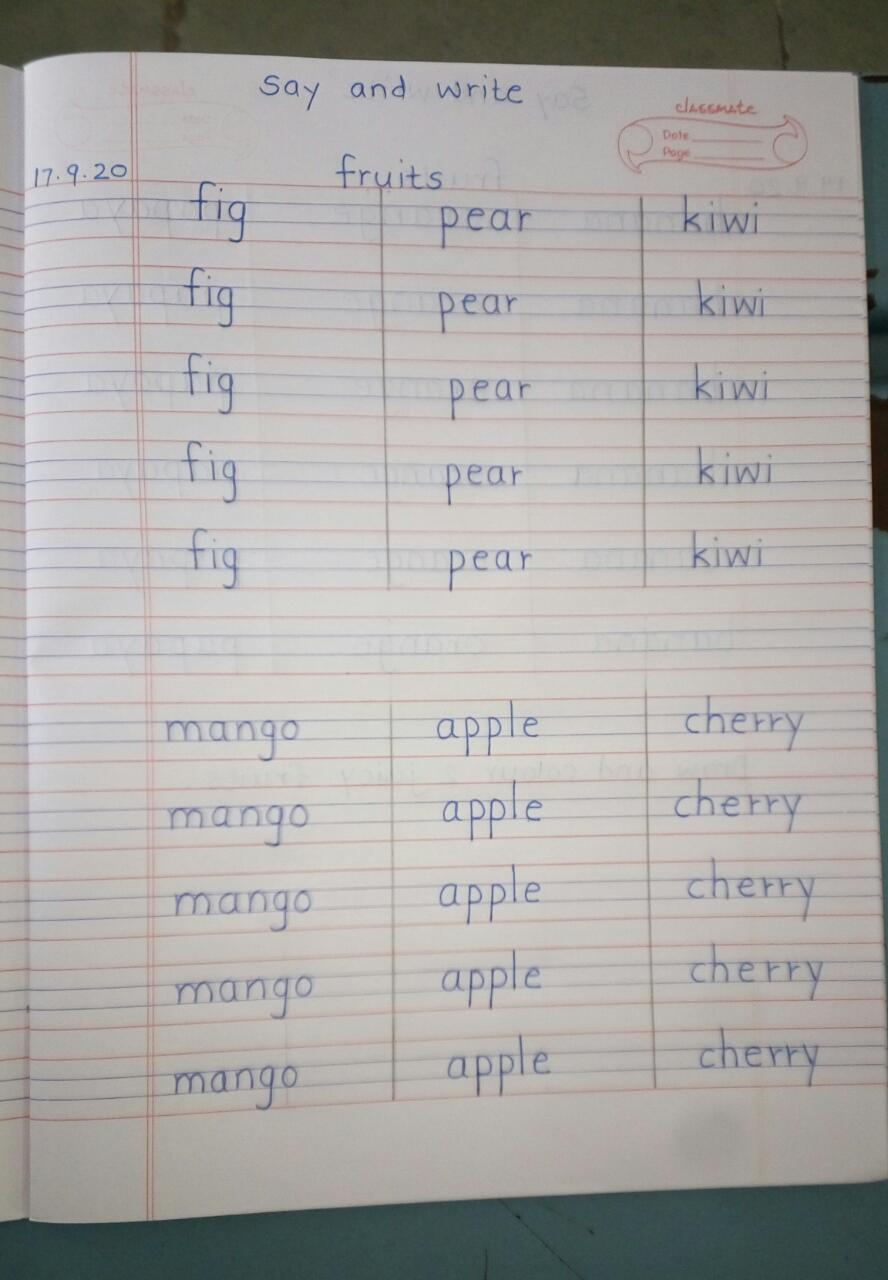 say and write
classmate
Date
Page
17.9.20 fruits
fig pear kiwi
fig pear kiwi
fig pear kiwi
fig pear kiwi
fig pear kiwi
mango apple cherry
mango apple cherry
mango apple cherry
mango apple cherry
mango apple cherry